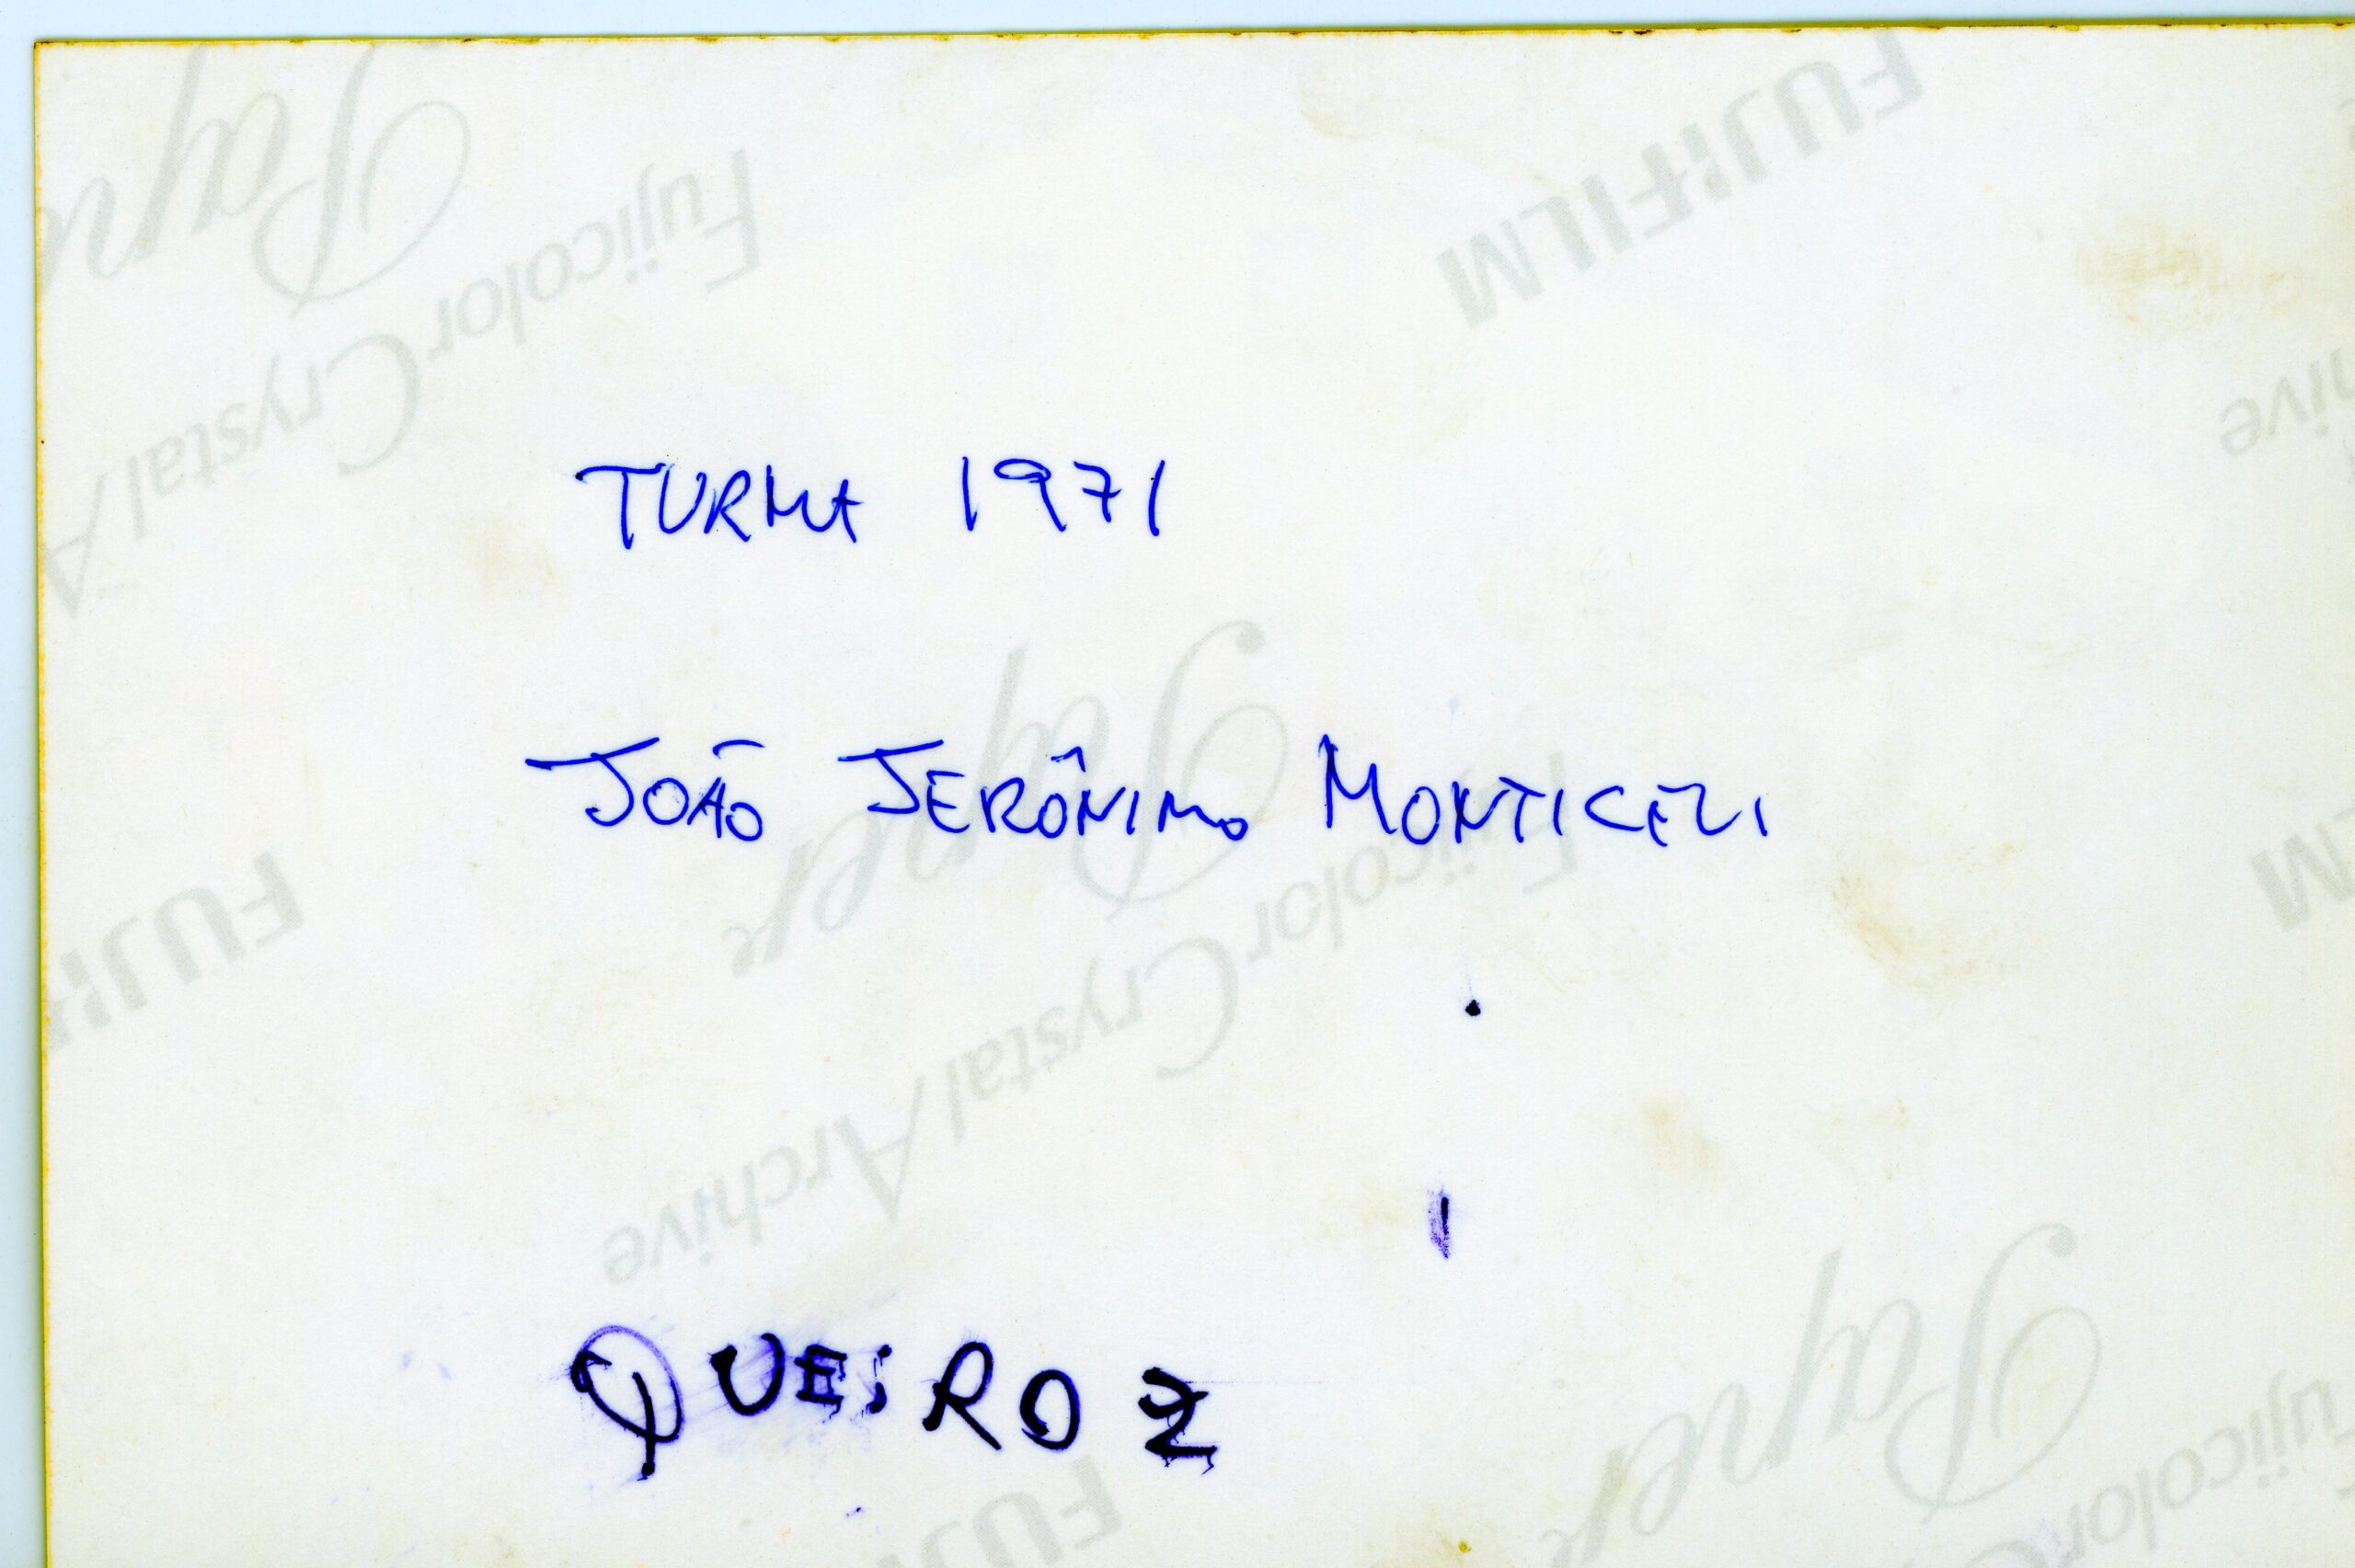 TURMA 1971
JOÃO JERÔNIMO MONTICELI
QUEIROZ
FUJIFILM
Fujicolor Crystal Archive
Paper